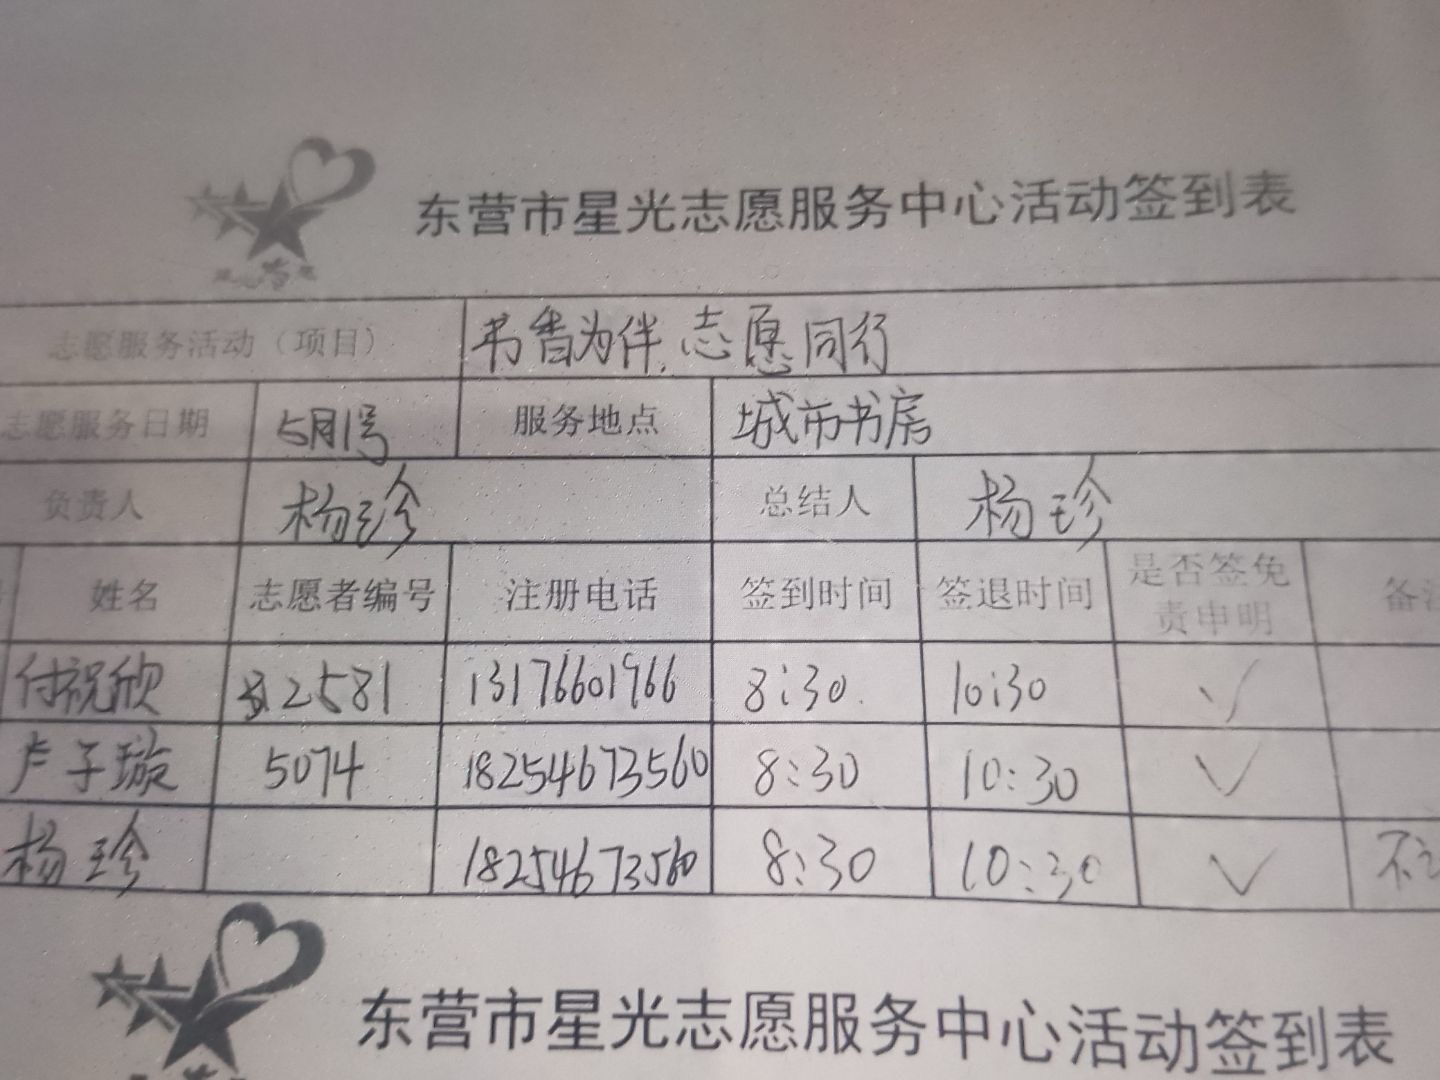 东营市星光志愿服务中心活动签到表
志愿服务活动（项目） 书香为伴, 志愿同行
志愿服务日期 5月1号 服务地点 城市书房
负责人 杨珍 总结人 杨珍
姓名 志愿者编号 注册电话 签到时间 签退时间 是否签免责申明 备
付祝欣 2581 13176601966 8:30 10:30 √
卢子璇 5074 18254673560 8:30 10:30 √
杨珍 18254673560 8:30 10:30 √ 不
东营市星光志愿服务中心活动签到表